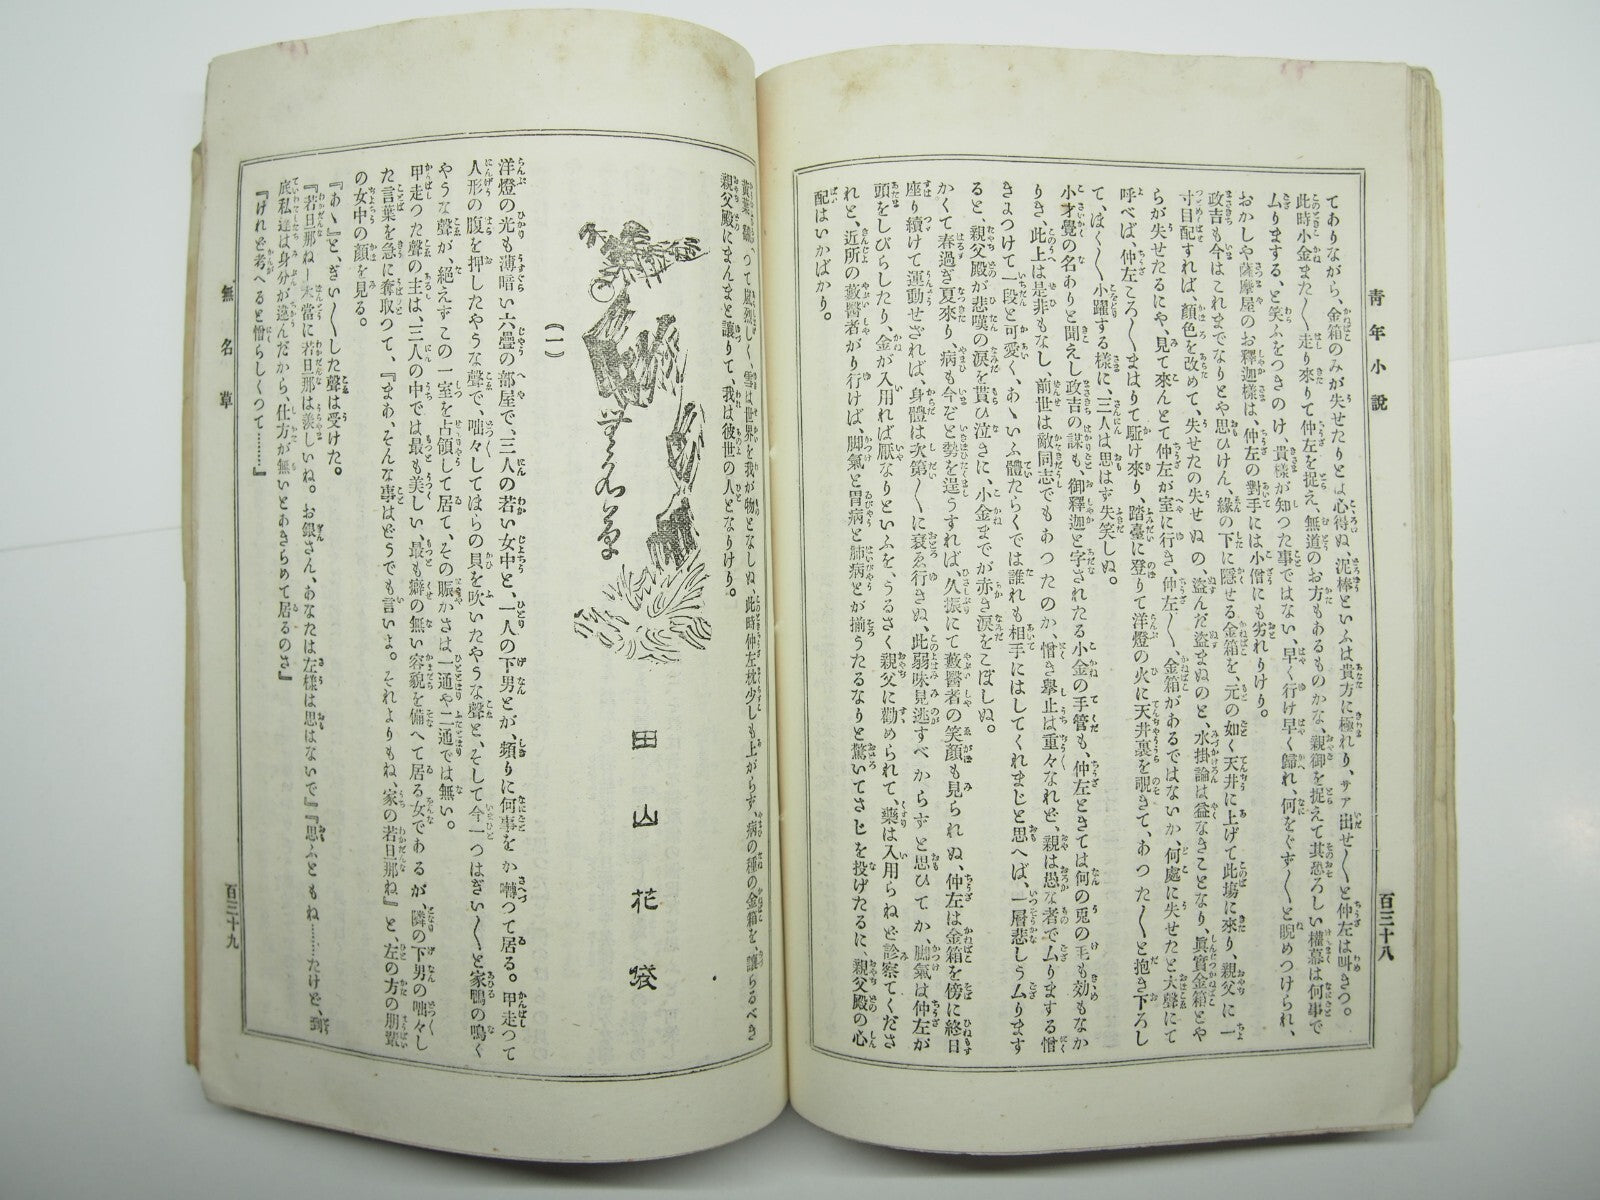 青年小說
百三十八
てありながら、金箱のみが失せたりとは心得ぬ、泥棒といふは貴方に極れり、サア出せ〳〵と仲左は叫きつ。
此時小金また〳〵走り來りて仲左を捉え、無道のお方もあるものかな、親御を捉えて其恐ろしい權幕は何事で
ムりまする、と笑ふをつきのけ、貴樣が知つた事ではない、早く行け早く歸れ、何をぐず〳〵と睨めつけられ、
おかしや薩摩屋のお釋迦樣は、仲左の對手には小僧にも劣れりけり。
政吉も今はこれまでなりとや思ひけん、緣の下に隱せる金箱を、元の如く天井に上げて此塲に來り、親父に一
寸目配すれば、顏色を改めて、失せたの失せぬの、盜んだ盜まぬのと、水掛論は益なきことなり、眞實金箱とや
らが失せたるにや、見て來んとて仲左が室に行き、仲左〳〵、金箱があるではないか、何處に失せたと大聲にて
呼べば、仲左ころ〳〵まはりて駈け來り、踏臺に登りて洋燈の火に天井裏を覗きて、あつた〳〵と抱き下ろし
て、ぼく〳〵小躍する樣に、三人は思はず失笑しぬ。
小才覺の名ありと聞えし政吉の謀も、御釋迦と字されたる小金の手管も、仲左ときては何の兎の毛も効もなか
りき、此上は是非もなし、前世は敵同志でもあつたのか、憎き擧止は重々なれど、親は愚な者でムりまする憎
きよつけて一段と可愛く、あゝいふ體たらくでは誰れも相手にはしてくれまじと思へば、一層悲しうムります
ると、親父殿が悲嘆の淚を貰ひ泣きに、小金までが赤き淚をこぼしぬ。
かくて春過ぎ夏來り、病も今ぞと勢を逞うすれば、久振にて藪醫者の笑顏も見られぬ、仲左は金箱を傍に終日
座り續けて運動せざれば、身體は次第〳〵に衰ゑ行きぬ、此弱味見逃すべからずと思ひてか、脚氣は仲左が
頭をしびらしたり、金が入用れば厭なりといふを、うるさく親父に勸められて、藥は入用らねど診察てくださ
れと、近所の藪醫者がり行けば、脚氣と胃病と肺病とが揃うたるなりと驚いてさじを投げたるに、親父殿の心
配はいかばかり。
黃葉飜つて風烈しく、雪は世界を我が物となしぬ、此時仲左枕少しも上がらず、病の種の金箱を、讓らるべき
親父殿にまんまと讓りて、我は彼世の人となりけり。
無名草
田山花袋
(一)
洋燈の光も薄暗い六疊の部屋で、三人の若い女中と、一人の下男とが、頻りに何事をか囀つて居る。甲走つて
人形の腹を押したやうな聲で、咄々してほらの貝を吹いたやうな聲と、そして今一つはぎい〳〵と家鴨の鳴く
やうな聲が、絕えずこの一室を占領して居て、その賑かさは一通や二通では無い。
甲走つた聲の主は、三人の中では最も美しい、最も癖の無い容貌を備へて居る女であるが、隣の下男の咄々し
た言葉を急に奪取つて、『まあ、そんな事はどうでも言いよ。それよりもね、家の若旦那ね』と、左の方の朋輩
の女中の顏を見る。
『あゝ』と、ぎい〳〵した聲は受けた。
『若旦那ね—本當に若旦那は羨しいね。お銀さん、あなたは左樣は思はないで』『思ふともね……だけど、到
底私達は身分が違んだから、仕方が無いとあきらめて居るのさ』
『けれど考へると憎らしくつて……』
無名草
百三十九